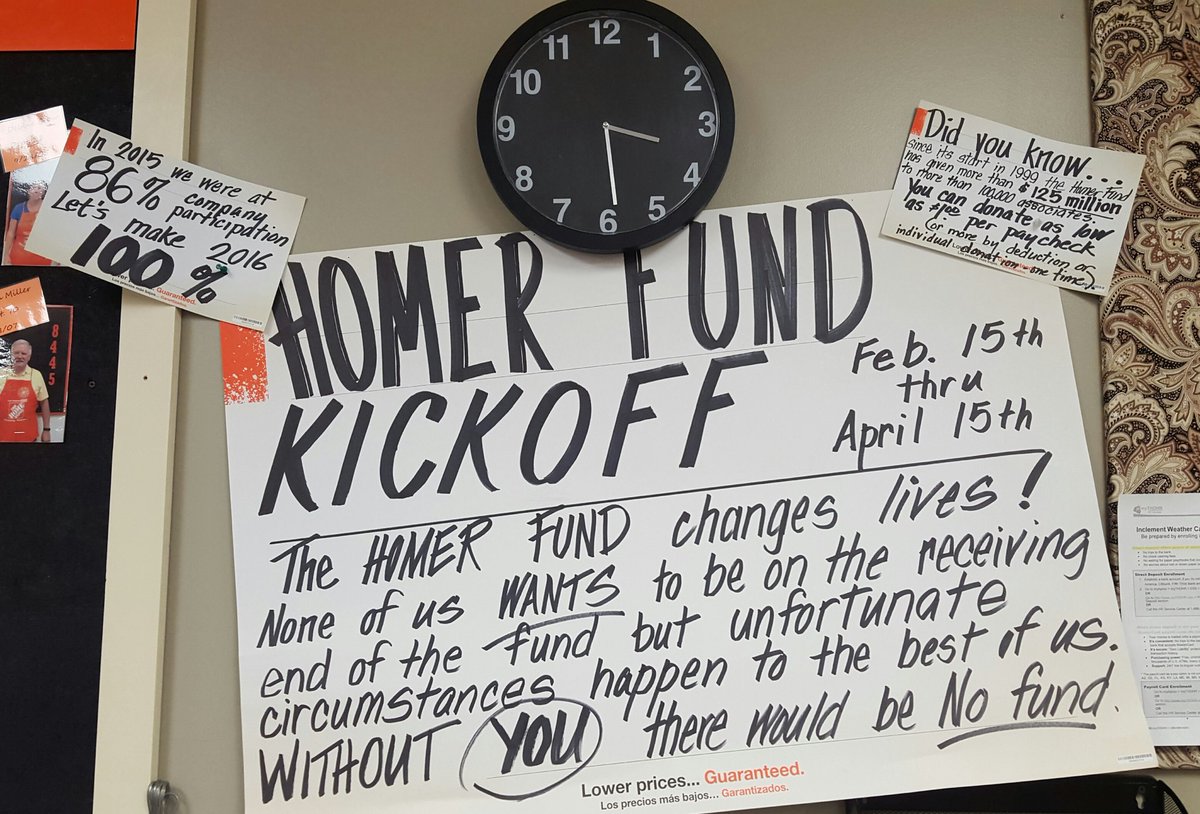 12
11
1
10
2
9
3
8
4
7
5
6
In 2015 we were at
86% company
participation
Let's make 2016
100%
Guaranteed.
Did you know...
since its start in 1999 the Homer Fund
has given more than $125 million
to more than 100,000 associates.
You can donate as low
per paycheck
(or more by deduction or
individual donation - one time).
Miller
8
4
4
5
HOMER FUND
KICKOFF
Feb. 15th
thru
April 15th
The HOMER FUND changes lives!
None of us WANTS to be on the receiving
end of the fund but unfortunate
circumstances happen to the best of us.
WITHOUT YOU there would be No fund.
Lower prices... Guaranteed.
Los precios más bajos... Garantizados.
Inclement Weather
Be prepared by enrolling
Direct Deposit Enrollment
OR
Payroll Card Enrollment
OR